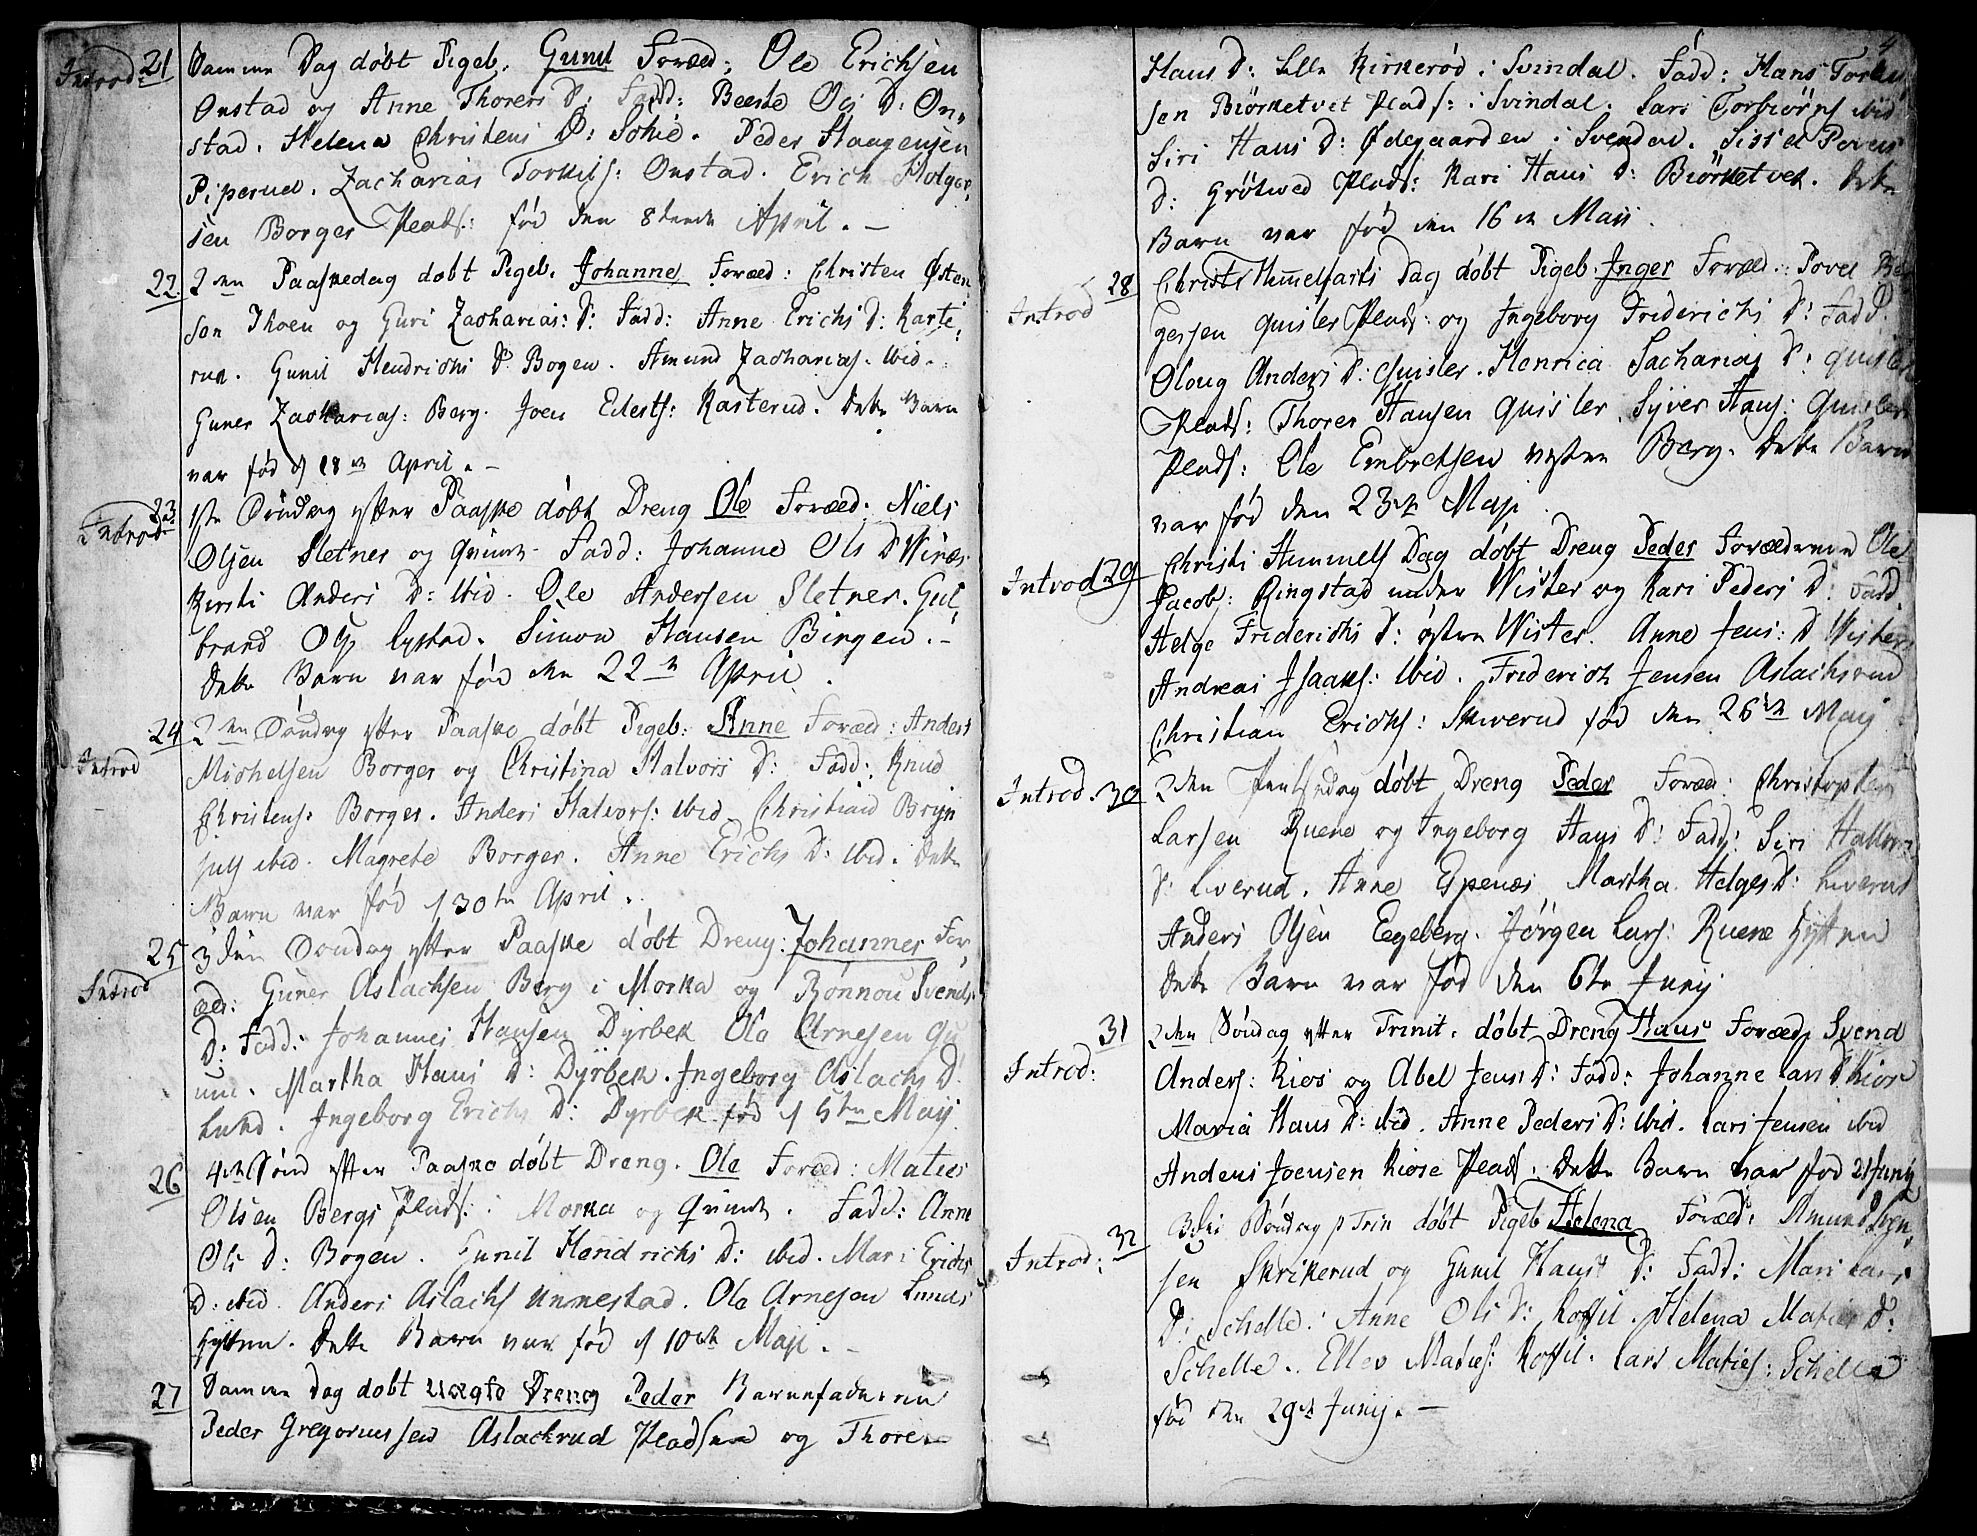 Introd: 21 Samme Dag døbt Pigeb. Gunil Foræd: Ole Erichsen
Onstad og Anne Thorers D: Fadd: Beeste Ols D: On-
stad. Helena Christens D: Sohie. Peder Haagensen
Piperud. Zacharias Torkils: Onstad. Erich Holger-
sen Borger Plads: fød den 8tende April. -
22. 2den Paaskedag dobt Pigeb. Johanne Foræd: Christen Østen-
sen Thoen og Guri Zacharias: D: Fadd: Anne Erichs D: Karte-
rud. Gunil Hendrichs D: Bogen. Amund Zacharias. ibid.
Guner Zacharias: Berg. Joen Edests: Kasterud. dette Barn
var fød d 18de April. -
23 Introd: 1ste Søndag efter Paaske døbt Dreng Ole Foræd: Niels
Olsen Sletner og Qvinde. Fadd: Johanne Ols D
Kersti Anders D: ibid. Ole Andersen Sletner. Gul-
brand Ols Systad. Simon Hansen Bingen. -
dette Barn var fød den 22de April.
24 Introd 2den Søndag efter Paaske døbt Pigeb: Anne Foræd: Anders
Michelsen Borger og Christina Halvors D: Fadd: Knud
Christens: Borger. Anders Halvors: ibid. Christian Bryn
ibid. Magrete Borger. Anne Erichs D: ibid. dette
Barn var fød d 30te April.
25 Introd 3die Søndag efter Paaske døbt Dreng: Johannes For-
æd: Guner Aslachsen Berg i Morka og Rønnou Svends
D: Fadd: Johannes Hansen Dyrbek Ola Arnesen
Martha Hans D: Dyrbek. Ingeborg Aslachs D.
Lund. Ingeborg Erichs D: Dyrbek fød d 5te Maij
26 4de Sønd efter Paaske døbt Dreng. Ole Foræd: Maties
Olsen Bergs Plads: i Morka og Qvinde. Fadd: Anne
Ols D: Bogen. Gunil Hendrichs D: ibid. Mari Erichs
D: ibid. Anders Aslachs Unnestad. Ola Arnesen Lunds
Hytten. dette Barn var fød d 10de Maji. -
27 Samme dag dobt uægte Dreng Peder Barnefaderen
Peder Gregoriussen Aslackrud Pladsen og Thore
4
Hans D: Lille Kirkerød i Svindal. Fadd: Hans Torkel
sen Biørketvet Plads: i Svindal. Lars Torbiørns ibid
Siri Hans D: Ødegaarden i Svendal. Sissel Povels
D: Grøtved Plads: Kari Hans D: Biørketvet. dette
Barn var fød den 16de Maii.
28 Introd Christi Himmelfarts Dag døbt Pigeb. Inger Foræd: Povel
gersen Quisler Plads: og Ingeborg Friderichs D: Fadd:
Oloug Anders D: Quisler. Henrica Sacharias D: Quisler
Plads: Thorer Hansen Quisler. Syver Hans: Quisler
Plads: Ole Embretsen vesten Berg. dette Barn
var fød den 23de Maji.
Introd 29 Christi Himmels Dag døbt Dreng Peder Forældrene Ole
Jacobs: Ringstad under Wister og Kari Peders D: Fadd.
Helge Friderichs D: østen Wister. Anne Jens: D Wister
Andreas Isaaks: ibid. Friderich Jensen Aslachsrud
Christian Erichs: Skiverud fød den 26de Maij
Introd. 30 2den Pentsedag døbt Dreng Peder Foræd: Christopher
Larsen Ruene og Ingeborg Hans D: Fadd: Siri Hallvors
D: Liverud. Anne Espenæs Martha Helges D: Liverud
Anders Olsen Eegeberg. Jørgen Lars: Ruene Hytten
dette Barn var fød den 6te Junij
31 Introd: 2den Søndag efter Trinit. døbt Dreng Hans Foræd: Svend
Anders: Kios og Abel Jens: D: Fadd: Johanne Lars D Kios
Maria Hans D: ibid. Anne Peders D: ibid. Lars Jensen ibid
Anders Joensen Kiose Plads. dette Barn var fød 21 Junij
32 Introd: 3die Søndag p Trin døbt Pigeb Helena Foræd: Amund Sven-
sen Skrikerud og Gunil Hans D: Fadd: Mari Lars
D: Schelle. Anne Ols D: Koffil. Helena Maties D:
Schelle. Ellev Maties: Koffil. Lars Maties: Schelle
fød den 29de Junij. -